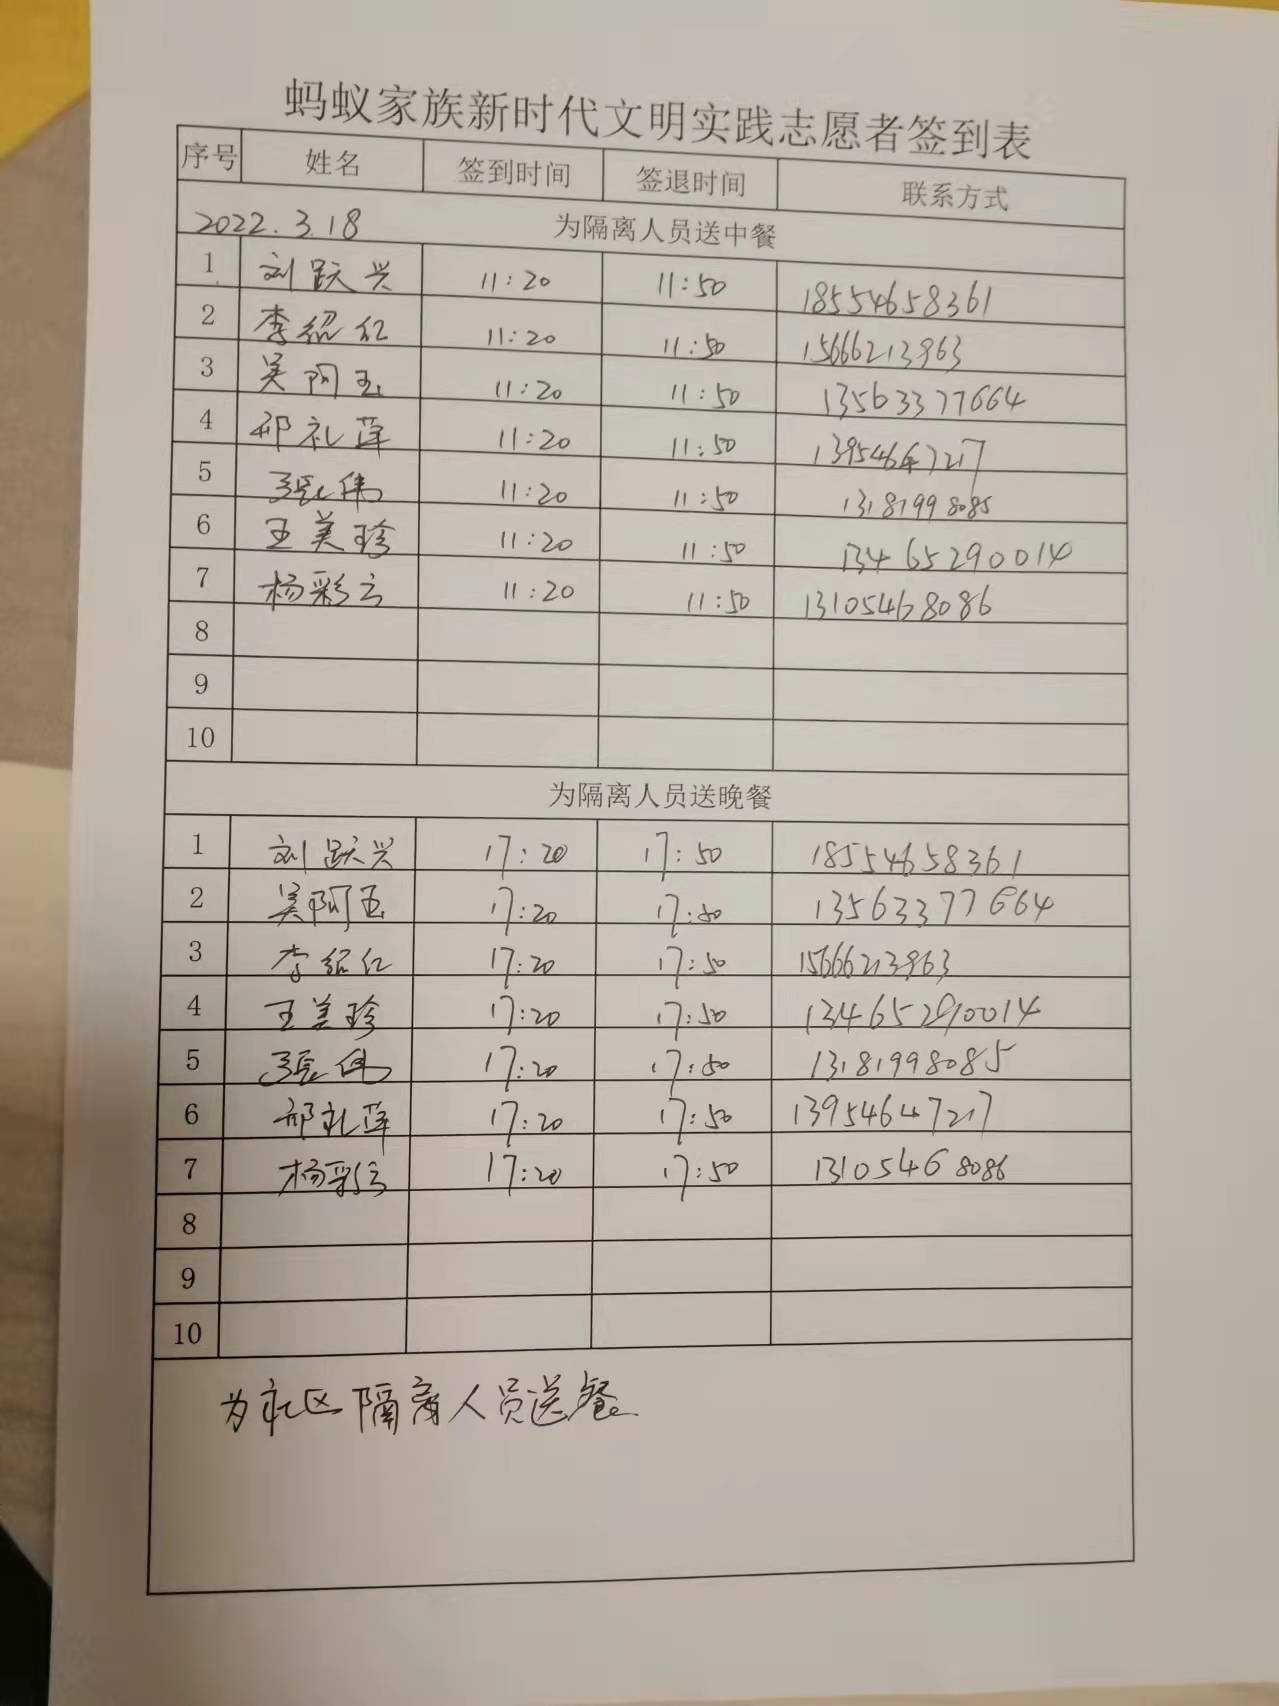 蚂蚁家族新时代文明实践志愿者签到表
序号 姓名 签到时间 签退时间 联系方式
2022.3.18 为隔离人员送中餐
1 刘跃兴 11:20 11:50 18554658361
2 李绍红 11:20 11:50 15666213963
3 吴阿玉 11:20 11:50 13563377664
4 邴礼萍 11:20 11:50 13954647217
5 张伟 11:20 11:50 1318199 8085
6 王美珍 11:20 11:50 13465290014
7 杨彩云 11:20 11:50 13105468086
8
9
10
为隔离人员送晚餐
1 刘跃兴 17:20 17:50 18554658361
2 吴阿玉 17:20 17:50 13563377664
3 李绍红 17:20 17:50 15666213963
4 王美珍 17:20 17:50 13465290014
5 张伟 17:20 17:50 13181998085
6 邴礼萍 17:20 17:50 13954647217
7 杨彩云 17:20 17:50 13105468086
8
9
10
为社区隔离人员送餐